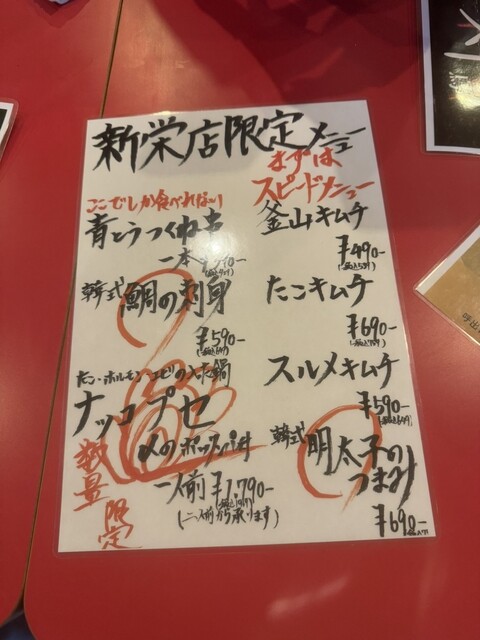 新栄店限定メニュー
ここでしか食べれな〜い
青とうつくね串
一本
韓式 鯛の刺身
¥590-
たこ・ホルモン・エビの入った鍋
ナッコプセ
〆のポックンパ付
一人前 ¥1,790-
(二人前から承ります)
数量限定
まずは
スピードメニュー
釜山キムチ
¥490-
たこキムチ
¥690-
スルメキムチ
¥590-
韓式 明太子の
つまみ
¥690-